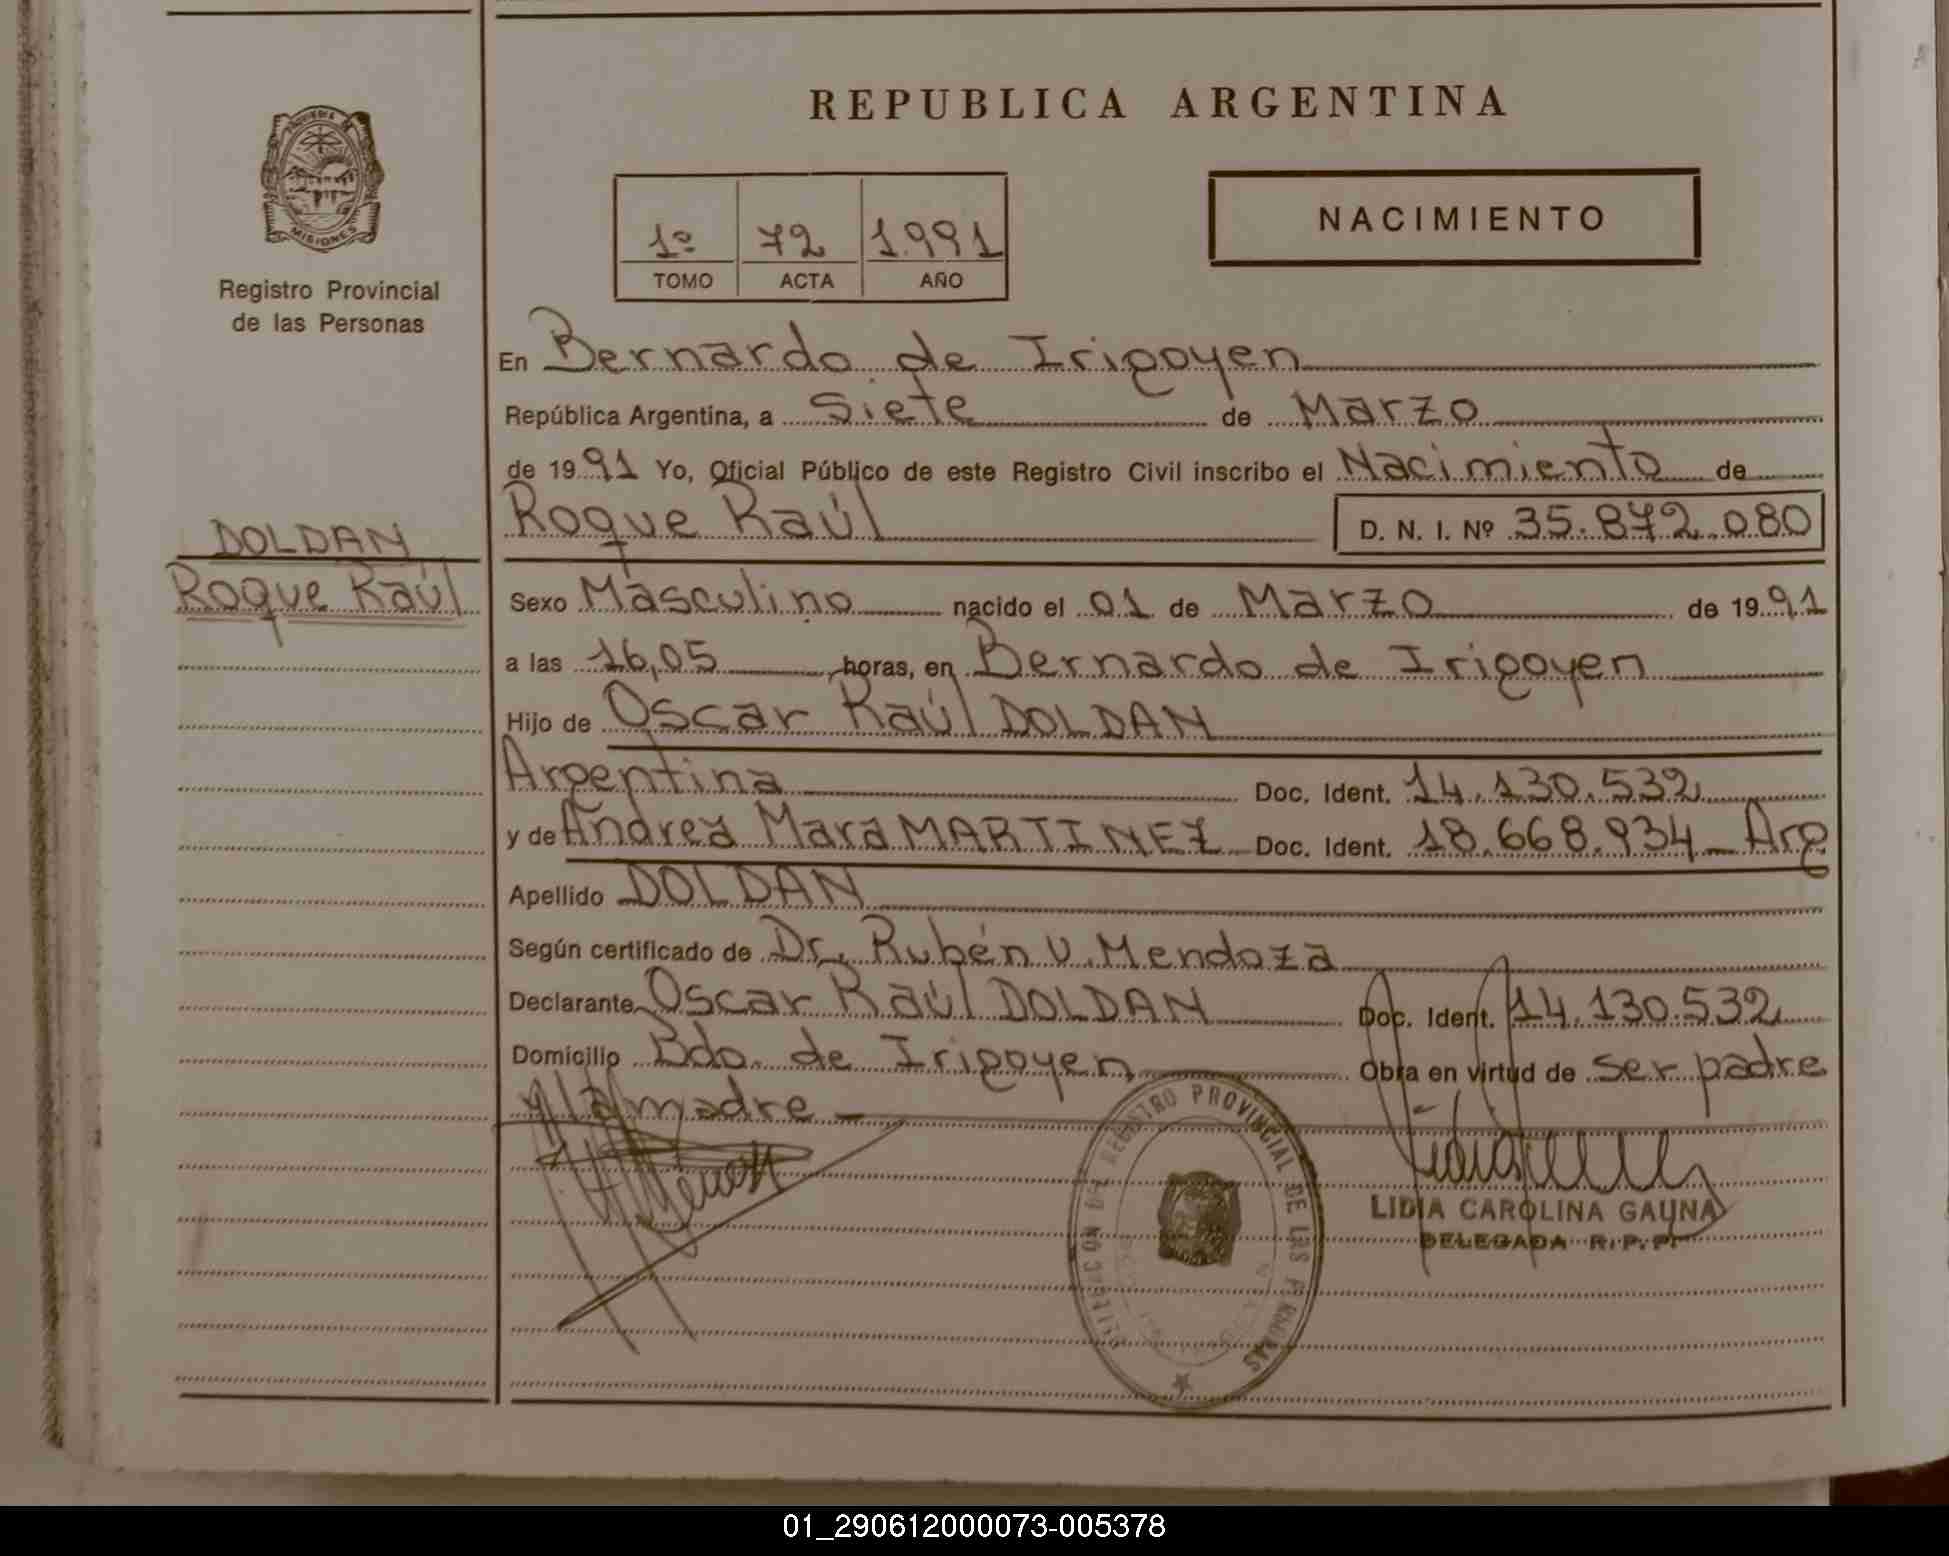 REPUBLICA ARGENTINA
PROVINCIA DE
MISIONES
Registro Provincial
de las Personas
1º 72 1.991
TOMO ACTA AÑO
NACIMIENTO
En Bernardo de Irigoyen
República Argentina, a Siete de Marzo
de 1991 Yo, Oficial Público de este Registro Civil inscribo el Nacimiento de
Roque Raúl D. N. I. Nº 35.872.080
DOLDAN
Roque Raúl
Sexo Masculino nacido el 01 de Marzo de 1991
a las 16,05 horas, en Bernardo de Irigoyen
Hijo de Oscar Raúl DOLDAN
Argentina Doc. Ident. 14.130.532
y de Andrea Mara MARTINEZ Doc. Ident. 18.668.934 Arg
Apellido DOLDAN
Según certificado de Dr. Rubén V. Mendoza
Declarante Oscar Raúl DOLDAN Doc. Ident. 14.130.532
Domicilio Bdo. de Irigoyen Obra en virtud de ser padre
y la madre
DELEGACION DEL REGISTRO PROVINCIAL DE LAS PERSONAS
LIDIA CAROLINA GAUNA
DELEGADA R.P.P.
01_290612000073-005378